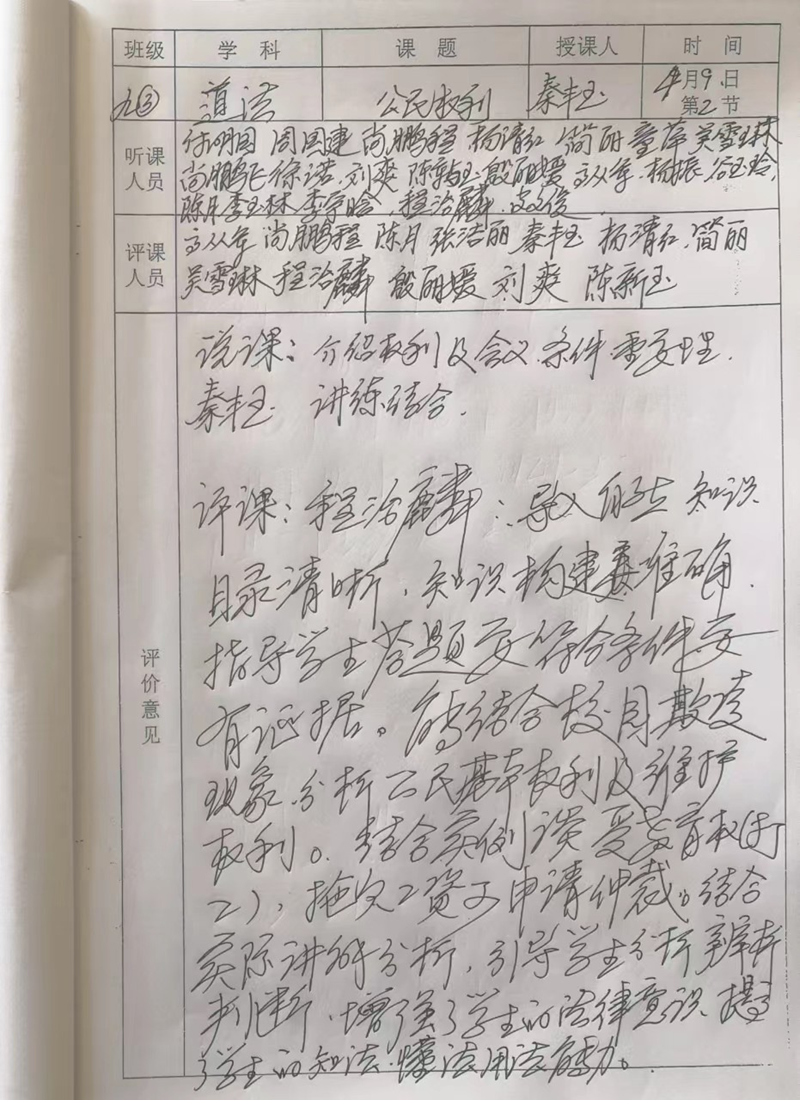 班级 学科 课题 授课人 时间
九③ 道法 公民权利 秦丰玉 4月9日
第2节
听课人员 付明国 周国建 尚鹏程 杨清红 简丽 童萍 吴雪琳
尚鹏飞 徐诺 刘爽 陈新玉 殷丽媛 高从军 杨振 谷玉玲
陈月 李玉林 李宇晗 程治麟
评课人员 高从军 尚鹏程 陈月 张洁丽 秦丰玉 杨清红 简丽
吴雪琳 程治麟 殷丽媛 刘爽 陈新玉
评价意见
说课：介绍权利及含义.条件.需要理.
秦丰玉 讲练结合.
评课：程治麟：导入 知识
目录清晰，知识构建要准确.
指导学生答题要符合条件要
有证据。能结合校园欺凌
现象分析公民基本权利及维护
权利。结合实例谈受教育权(打
工)，拖欠工资可申请仲裁。结合
实际讲解分析，引导学生分析辨析
判断，增强了学生的法律意识,提高
了学生的知法.懂法用法能力。